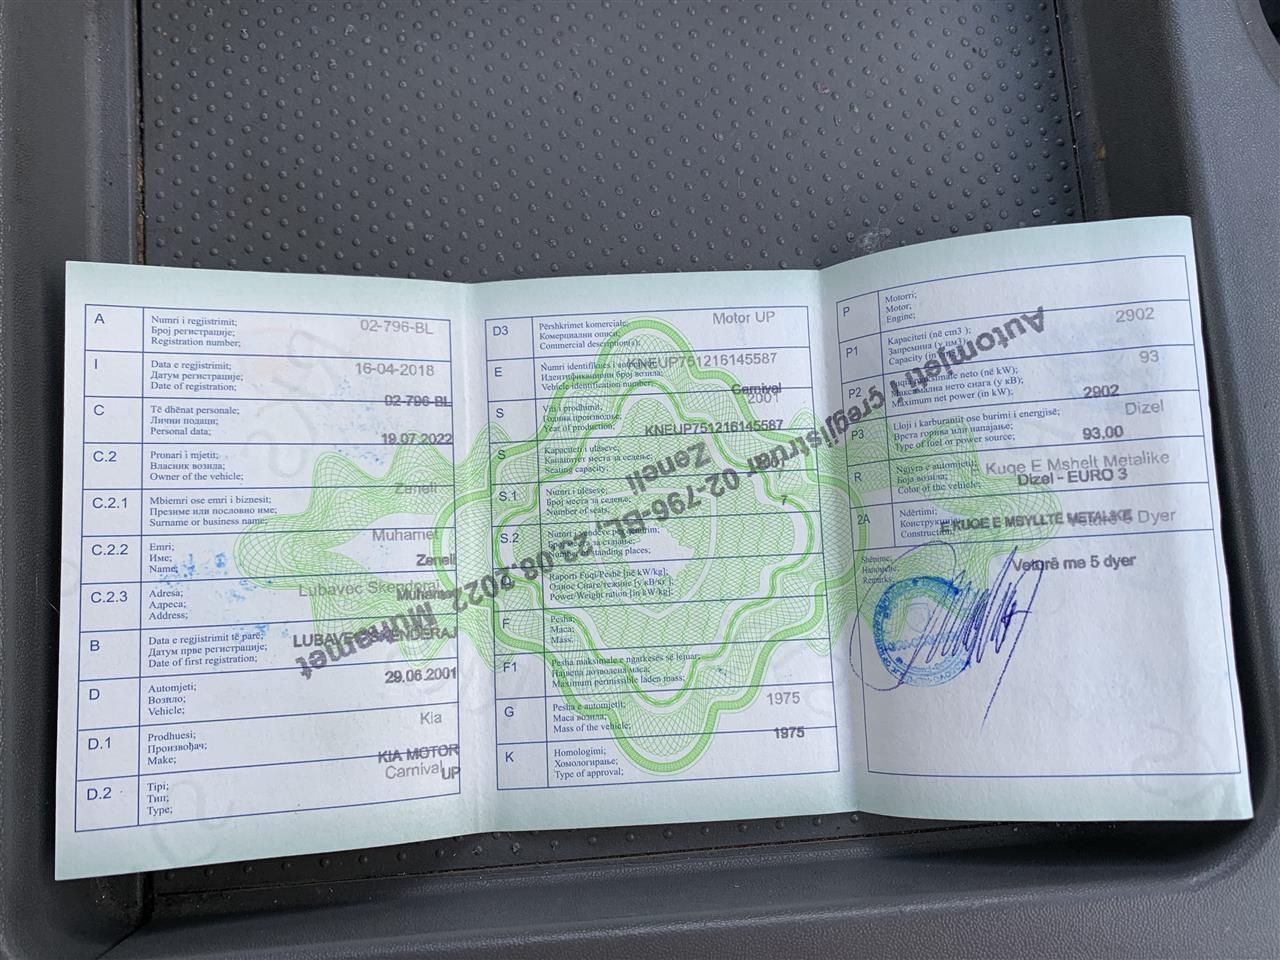 A
Numri i regjistrimit;
Број регистрације;
Registration number;
02-796-BL
I
Data e regjistrimit;
Датум регистрације;
Date of registration;
16-04-2018
02-796-BL
C
Të dhënat personale;
Лични подаци;
Personal data;
19.07.2022
C.2
Pronari i mjetit;
Власник возила;
Owner of the vehicle;
Zeneli
C.2.1
Mbiemri ose emri i biznesit;
Презиме или пословно име;
Surname or business name;
Muhamet
C.2.2
Emri;
Име;
Name;
Zeneli
C.2.3
Adresa;
Адреса;
Address;
Lubavec Skenderaj
Muhamet
B
Data e regjistrimit të parë;
Датум прве регистрације;
Date of first registration;
LUBAVEC SKENDERAJ
29.06.2001
D
Automjeti;
Возило;
Vehicle;
Kia
D.1
Prodhuesi;
Произвођач;
Make;
KIA MOTOR
D.2
Tipi;
Тип;
Type;
Carnival
UP
D3
Përshkrimet komerciale;
Комерциални описи;
Commercial description(s);
Motor UP
E
Numri identifikues i
Идентификациони број возила;
Vehicle identification number;
KNEUP751216145587
Carnival
S
Viti i prodhimit;
Година производње;
Year of production;
2001
KNEUP751216145587
S
Kapaciteti i ulëseve;
Капацитет места за седење;
Seating capacity;
S.1
Numri i ulëseve;
Број места за седење;
Number of seats;
7
S.2
Number of standing places;
Raporti Fuqi/Peshë [në kW/kg];
Однос Снаге/тежине [у кВ/кг];
Power/Weight ration [in kW/kg];
F
Pesha;
Маса;
Mass;
F1
Pesha maksimale e ngarkesës së lejuar;
Највећа дозвољена маса;
Maximum permissible laden mass;
G
Pesha e automjetit;
Маса возила;
Mass of the vehicle;
1975
1975
K
Homologimi;
Хомологирање;
Type of approval;
P
Motorri;
Мотор;
Engine;
2902
P1
Kapaciteti (në cm3 );
Запремина (у цм3)
Capacity (in
93
P2
maksimale neto (në kW);
Максимална нето снага (у кВ);
Maximum net power (in kW);
2902
P3
Lloji i karburantit ose burimi i energjisë;
Врста горива или напајање;
Type of fuel or power source;
Dizel
93,00
R
Ngjyra e automjetit;
Боја возила;
Color of the vehicle;
Kuqe E Mshelt Metalike
Dizel - EURO 3
2A
Ndërtimi;
Construction;
E KUQE E MBYLLTË METALIKE
Veturë 5 Dyer
Shënime;
Remarks;
Veturë me 5 dyer
Automjeti i çregjistruar 02-796-BL, 23.08.2022 Muhamet
Zeneli